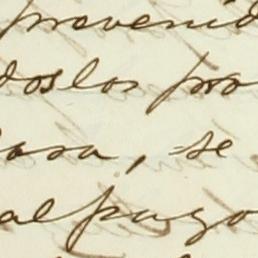 prevenid
dos los pro
casa, se
al pago